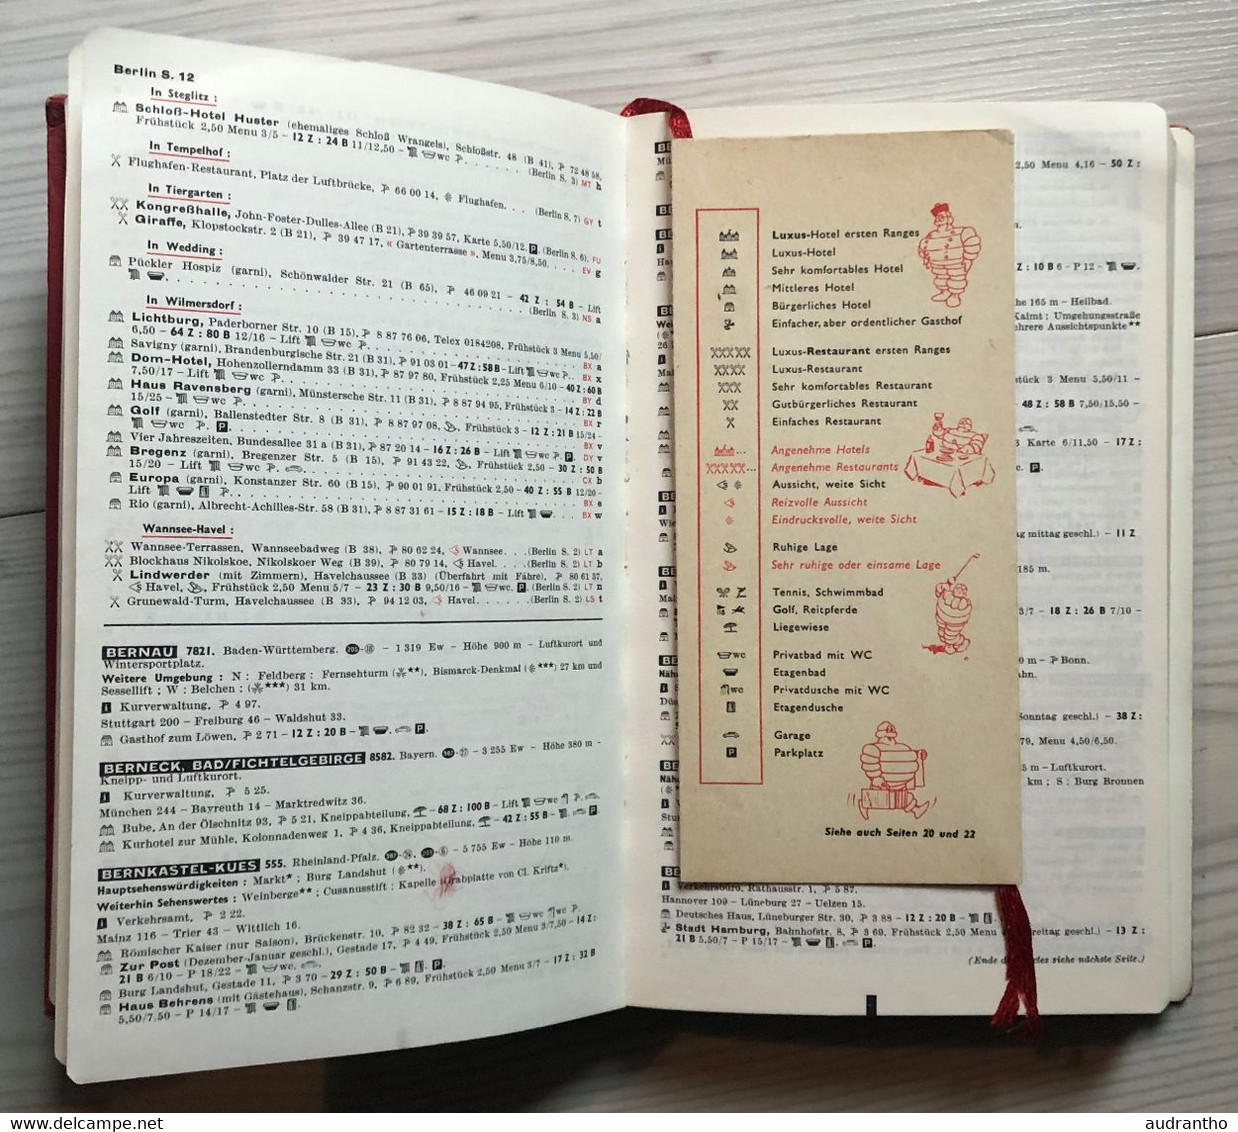 Berlin S. 12
In Steglitz :
Schloß-Hotel Huster (ehemaliges Schloß Wrangels), Schloßstr. 48 (B 41), 72 48 58,
Frühstück 2,50 Menu 3/5 – 12 Z : 24 B 11/12,50 – wc (Berlin S. 3) MT h
In Tempelhof :
Flughafen-Restaurant, Platz der Luftbrücke, 66 00 14, Flughafen. . . (Berlin S. 7) GY t
In Tiergarten :
Kongreßhalle, John-Foster-Dulles-Allee (B 21), 39 39 57, Karte 5,50/12, P. (Berlin S. 6). FU
Giraffe, Klopstockstr. 2 (B 21), 39 47 17, « Gartenterrasse », Menu 3,75/8,50. . . . EV g
In Wedding :
Pückler Hospiz (garni), Schönwalder Str. 21 (B 65), 46 09 21 – 42 Z : 54 B – Lift
(Berlin S. 3) NS a
In Wilmersdorf :
Lichtburg, Paderborner Str. 10 (B 15), 8 87 76 06, Telex 0184208, Frühstück 3 Menu 5,50/
6,50 – 64 Z : 80 B 12/16 – Lift wc BX a
Savigny (garni), Brandenburgische Str. 21 (B 31), 91 03 01 – 47 Z : 58 B – Lift wc BX x
Dom-Hotel, Hohenzollerndamm 33 (B 31), 87 97 80, Frühstück 2,25 Menu 6/10 – 40 Z : 60 B
7,50/17 – Lift wc BY d
Haus Ravensberg (garni), Münstersche Str. 11 (B 31), 8 87 94 95, Frühstück 3 – 14 Z : 22 B
15/25 – wc BX r
Golf (garni), Ballenstedter Str. 8 (B 31), 8 87 97 08, Frühstück 3 – 12 Z : 21 B 15/24 –
wc P. BX v
Vier Jahreszeiten, Bundesallee 31 a (B 31), 87 20 14 – 16 Z : 26 B – Lift wc P. DY v
Bregenz (garni), Bregenzer Str. 5 (B 15), 91 43 22, Frühstück 2,50 – 30 Z : 50 B
15/20 – Lift wc CX b
Europa (garni), Konstanzer Str. 60 (B 15), 90 01 91, Frühstück 2,50 – 40 Z : 55 B 12/20 –
Lift wc BX e
Rio (garni), Albrecht-Achilles-Str. 58 (B 31), 8 87 31 61 – 15 Z : 18 B – Lift . . . BX w
Wannsee-Havel :
Wannsee-Terrassen, Wannseebadweg (B 38), 80 62 24, Wannsee. . .(Berlin S. 2) LT a
Blockhaus Nikolskoe, Nikolskoer Weg (B 39), 80 79 14, Havel. . . .(Berlin S. 2) LT b
Lindwerder (mit Zimmern), Havelchaussee (B 33) (Überfahrt mit Fähre), 80 61 37,
Havel, Frühstück 2,50 Menu 5/7 – 23 Z : 30 B 9,50/16 – wc P. (Berlin S. 2) LT n
Grunewald-Turm, Havelchaussee (B 33), 94 12 03, Havel. . . . . .(Berlin S. 2) LS t
BERNAU 7821. Baden-Württemberg. – 1 319 Ew – Höhe 900 m – Luftkurort und
Wintersportplatz.
Weitere Umgebung : N : Feldberg : Fernsehturm (**), Bismarck-Denkmal (***) 27 km und
Sessellift ; W : Belchen : (***) 31 km.
Kurverwaltung, 4 97.
Stuttgart 200 – Freiburg 46 – Waldshut 33.
Gasthof zum Löwen, 2 71 – 12 Z : 20 B – P.
BERNECK, BAD/FICHTELGEBIRGE 8582. Bayern. – 3 255 Ew – Höhe 380 m –
Kneipp- und Luftkurort.
Kurverwaltung, 5 25.
München 244 – Bayreuth 14 – Marktredwitz 36.
Bube, An der Ölschnitz 93, 5 21, Kneippabteilung, – 68 Z : 100 B – Lift wc
Kurhotel zur Mühle, Kolonnadenweg 1, 4 36, Kneippabteilung, – 42 Z : 55 B – P.
BERNKASTEL-KUES 555. Rheinland-Pfalz. – 5 755 Ew – Höhe 110 m.
Hauptsehenswürdigkeiten : Markt* ; Burg Landshut (**).
Weiterhin Sehenswertes : Weinberge** ; Cusanusstift : Kapelle (Grabplatte von Cl. Kriftz*).
Verkehrsamt, 2 22.
Mainz 116 – Trier 43 – Wittlich 16.
Römischer Kaiser (nur Saison), Brückenstr. 10, 82 32 – 38 Z : 65 B – wc wc
Zur Post (Dezember-Januar geschl.), Gestade 17, 4 49, Frühstück 2,50 Menu 3/7,50 – 14 Z :
21 B 6/10 – P 18/22 – wc
Burg Landshut, Gestade 11, 3 70 – 29 Z : 50 B – P.
Haus Behrens (mit Gästehaus), Schanzstr. 9, 6 89, Frühstück 2,50 Menu 3/7 – 17 Z : 32 B
5,50/7,50 – P 14/17 –
Luxus-Hotel ersten Ranges
Luxus-Hotel
Sehr komfortables Hotel
Mittleres Hotel
Bürgerliches Hotel
Einfacher, aber ordentlicher Gasthof
Luxus-Restaurant ersten Ranges
Luxus-Restaurant
Sehr komfortables Restaurant
Gutbürgerliches Restaurant
Einfaches Restaurant
Angenehme Hotels
Angenehme Restaurants
Aussicht, weite Sicht
Reizvolle Aussicht
Eindrucksvolle, weite Sicht
Ruhige Lage
Sehr ruhige oder einsame Lage
Tennis, Schwimmbad
Golf, Reitpferde
Liegewiese
wc Privatbad mit WC
Etagenbad
wc Privatdusche mit WC
Etagendusche
Garage
P Parkplatz
Siehe auch Seiten 20 und 22
2,50 Menu 4,16 – 50 Z :
Z : 10 B 6 – P 12 –
he 165 m – Heilbad.
Kaimt : Umgebungsstraße
ehrere Aussichtspunkte**
stück 3 Menu 5,50/11 –
48 Z : 58 B 7,50/15,50 –
Karte 6/11,50 – 17 Z :
P.
ag mittag geschl.) – 11 Z
185 m.
3/7 – 18 Z : 26 B 7/10 –
0 m – Bonn.
ahn.
Sonntag geschl.) – 38 Z :
79, Menu 4,50/6,50.
5 m – Luftkurort.
km ; S : Burg Bronnen
Verkehrsbüro, Rathausstr. 1, 5 87.
Hannover 109 – Lüneburg 27 – Uelzen 15.
Deutsches Haus, Lüneburger Str. 30, 3 88 – 12 Z : 20 B –
Stadt Hamburg, Bahnhofstr. 8, 3 69, Frühstück 2,50 Menu reitag geschl.) – 13 Z :
21 B 5,50/7 – P 15/17 – P.
(Ende d tes siehe nächste Seite.)
www.delcampe.net
audrantho